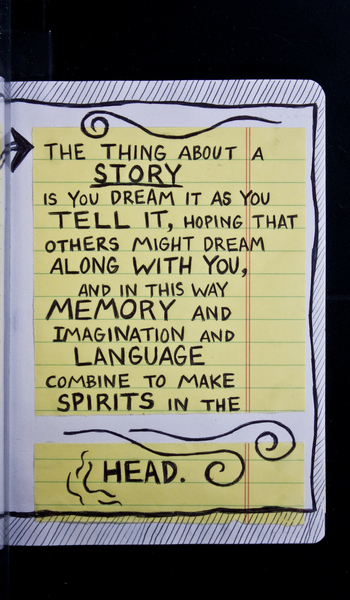 THE THING ABOUT A
STORY
IS YOU DREAM IT AS YOU
TELL IT, HOPING THAT
OTHERS MIGHT DREAM
ALONG WITH YOU,
AND IN THIS WAY
MEMORY AND
IMAGINATION AND
LANGUAGE
COMBINE TO MAKE
SPIRITS IN THE
HEAD.